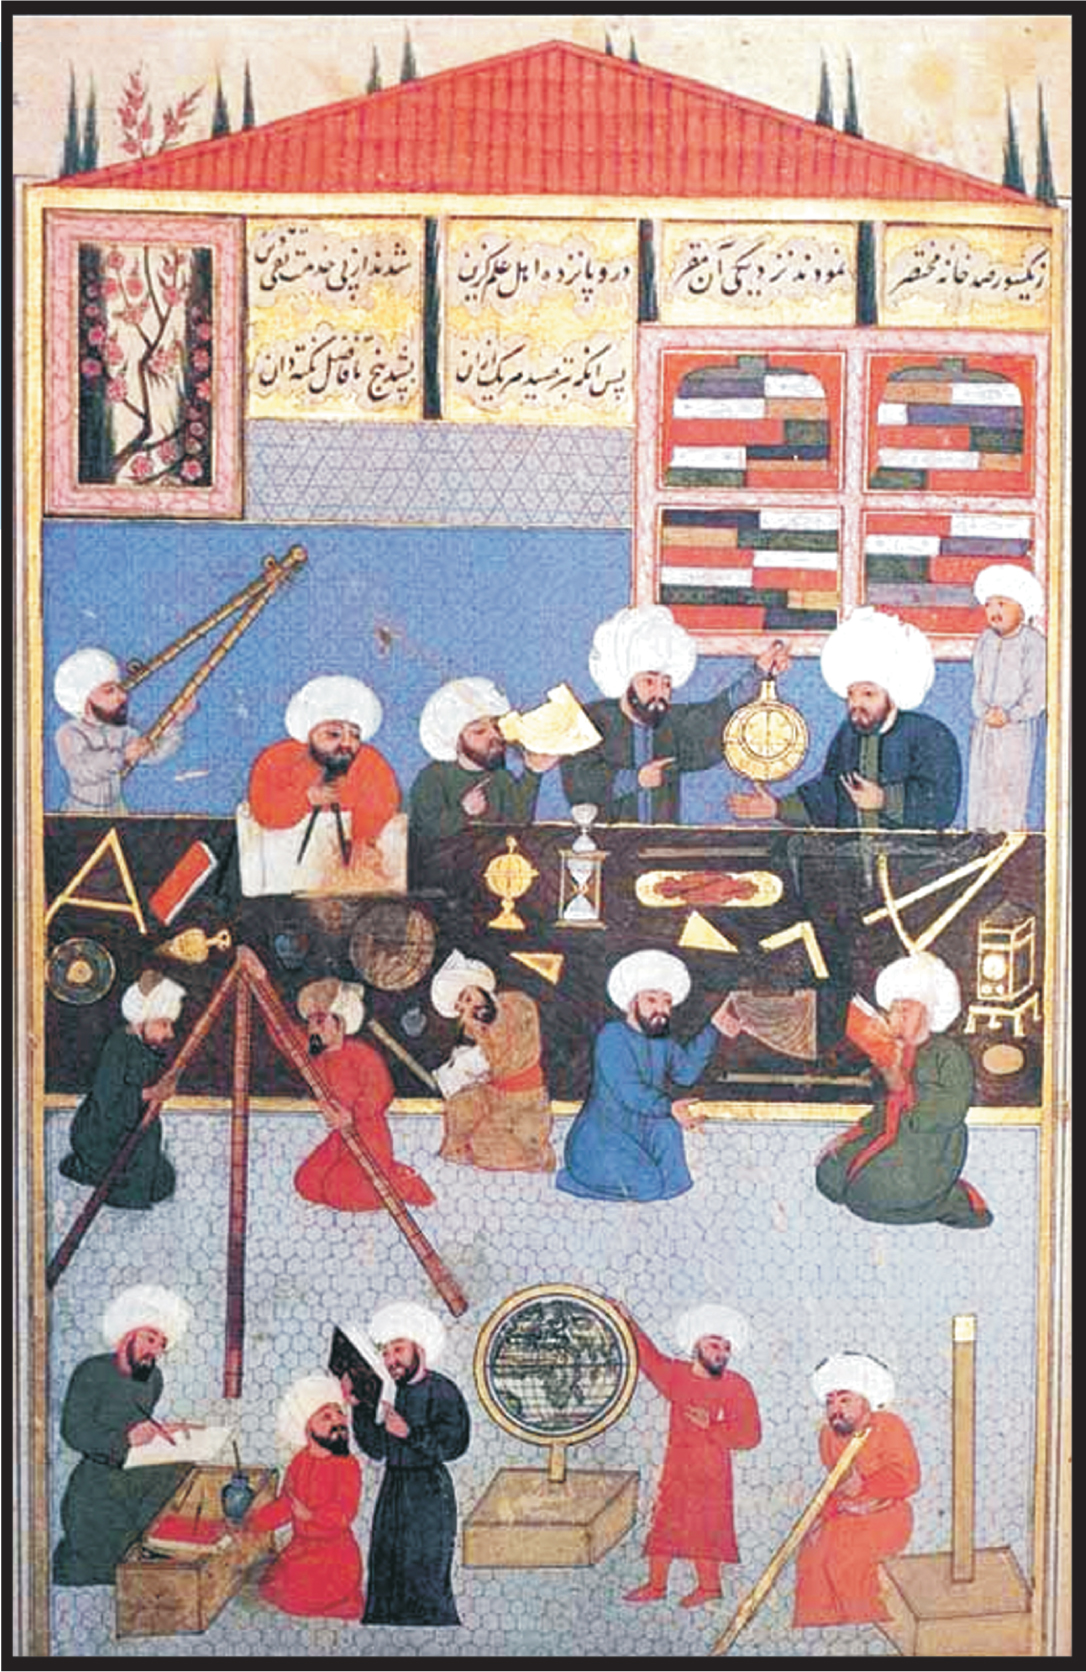 زیکسو رصد خانه مختصر نمودند نزدیکی آن مقر درو پانزده اهل علم گزین شدند از پی خدمت تقی دین
پس آنکه بترصید هر یک ازان بشد پنج تا فاضل نکته دان